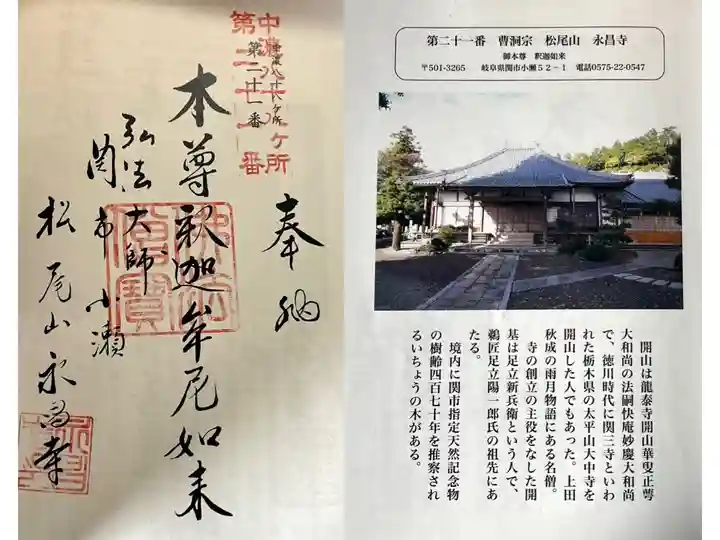 奉納
中濃八十八ケ所
第二十一番
中濃八十八ケ所
第二十一番
本尊釈迦牟尼如来
弘法大師
関市小瀬
松尾山永昌寺
第二十一番 曹洞宗 松尾山 永昌寺
御本尊 釈迦如来
〒501-3265 岐阜県関市小瀬52−1 電話0575-22-0547
開山は龍泰寺開山華叟正蕚
大和尚の法嗣快庵妙慶大和尚
で、徳川時代に関三寺といわ
れた栃木県の太平山大中寺を
開山した人でもあった。上田
秋成の雨月物語にある名僧。
寺の創立の主役をなした開
基は足立新兵衛という人で、
鵜匠足立陽一郎氏の祖先にあ
たる。
境内に関市指定天然記念物
の樹齢四百七十年を推察され
るいちょうの木がある。